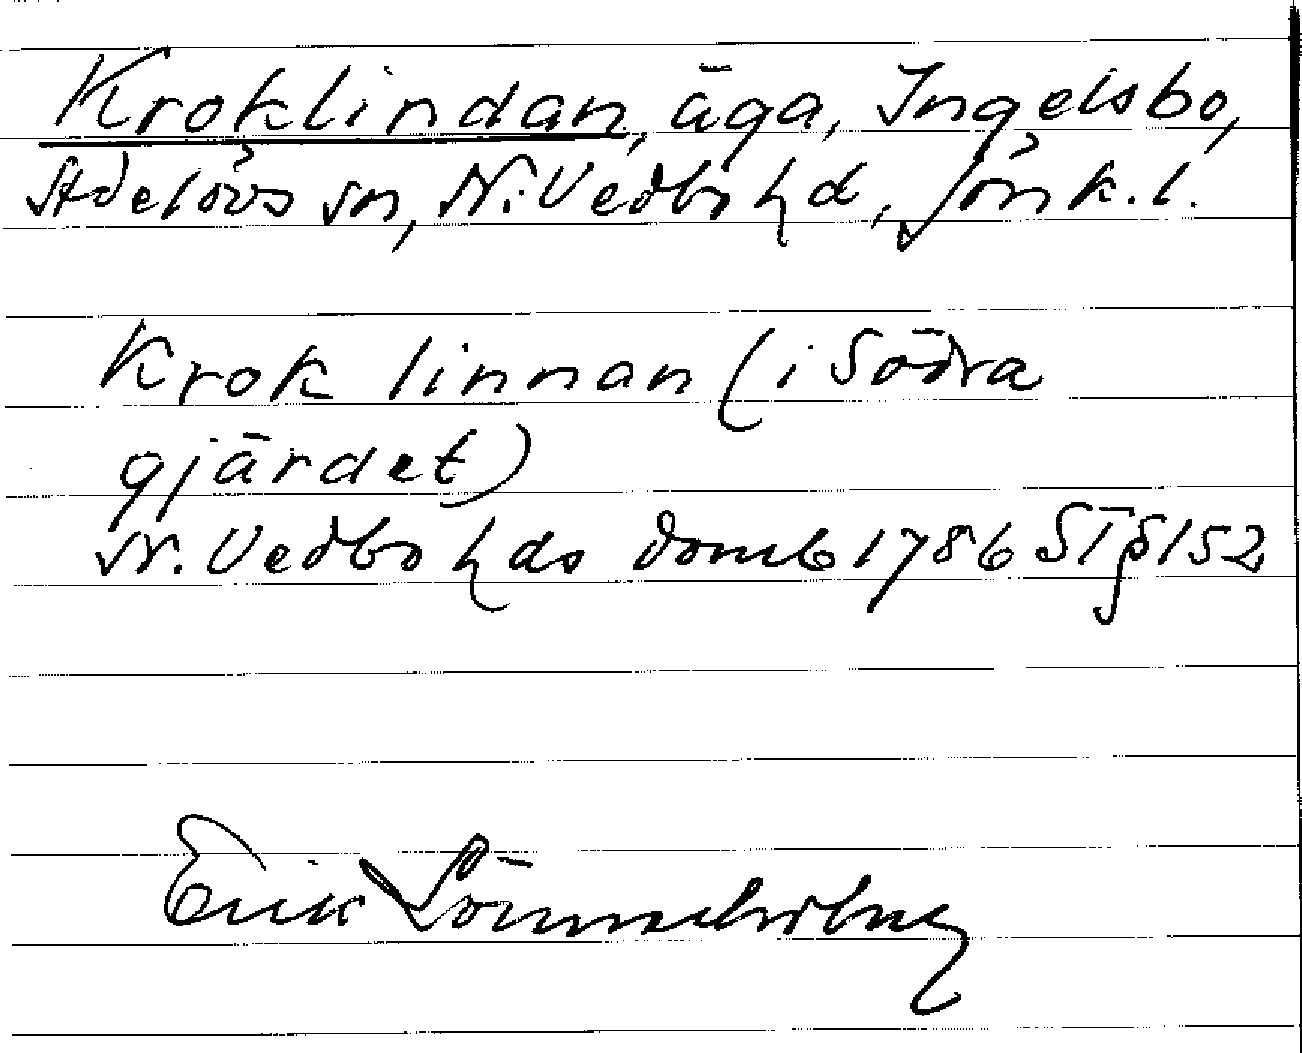 Kroklindan, äga, Ingelsbo,
Adelövs sn, N. Vedbo hd, Jönk. l.
Krok linnan (i Södra
gjärdet)
N. Vedbo hds domb 1786 ST § 152
Erik Lönnerholm